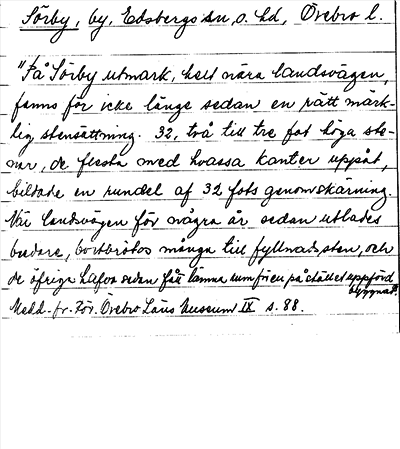 Sörby, by, Edsbergs sn, o. hd, Örebro l.
"På Sörby utmark, helt nära landsvägen,
fanns för icke länge sedan en rätt märk-
lig stensättning. 32, två till tre fot höga ste-
nar, de flesta med hvassa kanter uppåt,
bildade en rundel af 32 fots genomskärning.
När landsvägen för några år sedan utlades
bredare, bortbrötos många till fyllnadssten, och
de öfriga hafva sedan fått lämna rum för en på stället uppförd
byggnad".
Medd. fr. För. Örebro Läns Museum IX s. 88.